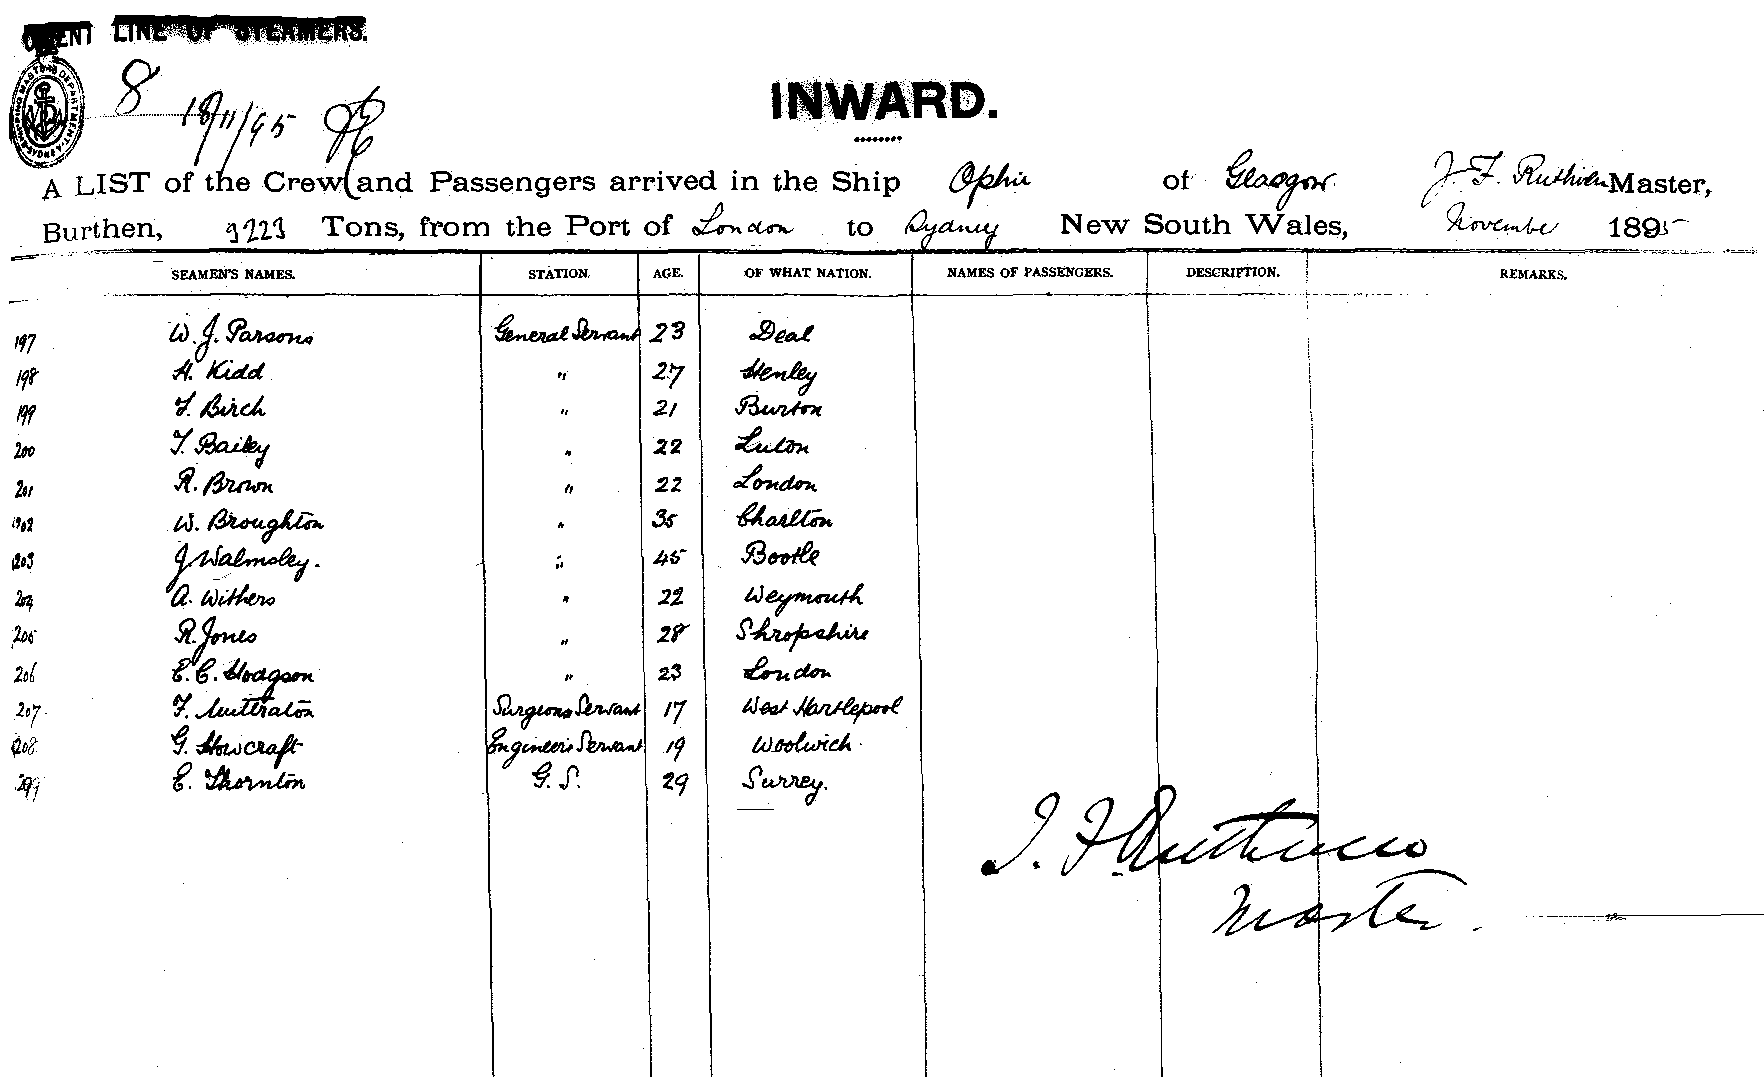 ORIENT LINE OF STEAMERS.
8
18/11/95
INWARD.
A LIST of the Crew and Passengers arrived in the Ship Ophir of Glasgow J. F. Ruthven Master,
Burthen, 9223 Tons, from the Port of London to Sydney New South Wales, November 1895
SEAMEN'S NAMES. STATION. AGE. OF WHAT NATION. NAMES OF PASSENGERS. DESCRIPTION. REMARKS.
197 W. J. Parsons General Servant 23 Deal
198 H. Kidd " 27 Henley
199 F. Birch " 21 Burton
200 T. Bailey " 22 Luton
201 R. Brown " 22 London
202 W. Broughton " 35 Charlton
203 J Walmsley. " 45 Bootle
204 A. Withers " 22 Weymouth
205 R. Jones " 28 Shropshire
206 E. C. Hodgson " 23 London
207 F. Surgeons Servant 17 West Hartlepool
208 G. Howcraft Engineers Servant 19 Woolwich
209 E. Thornton G. S. 29 Surrey.
J. F. Ruthven
Master.